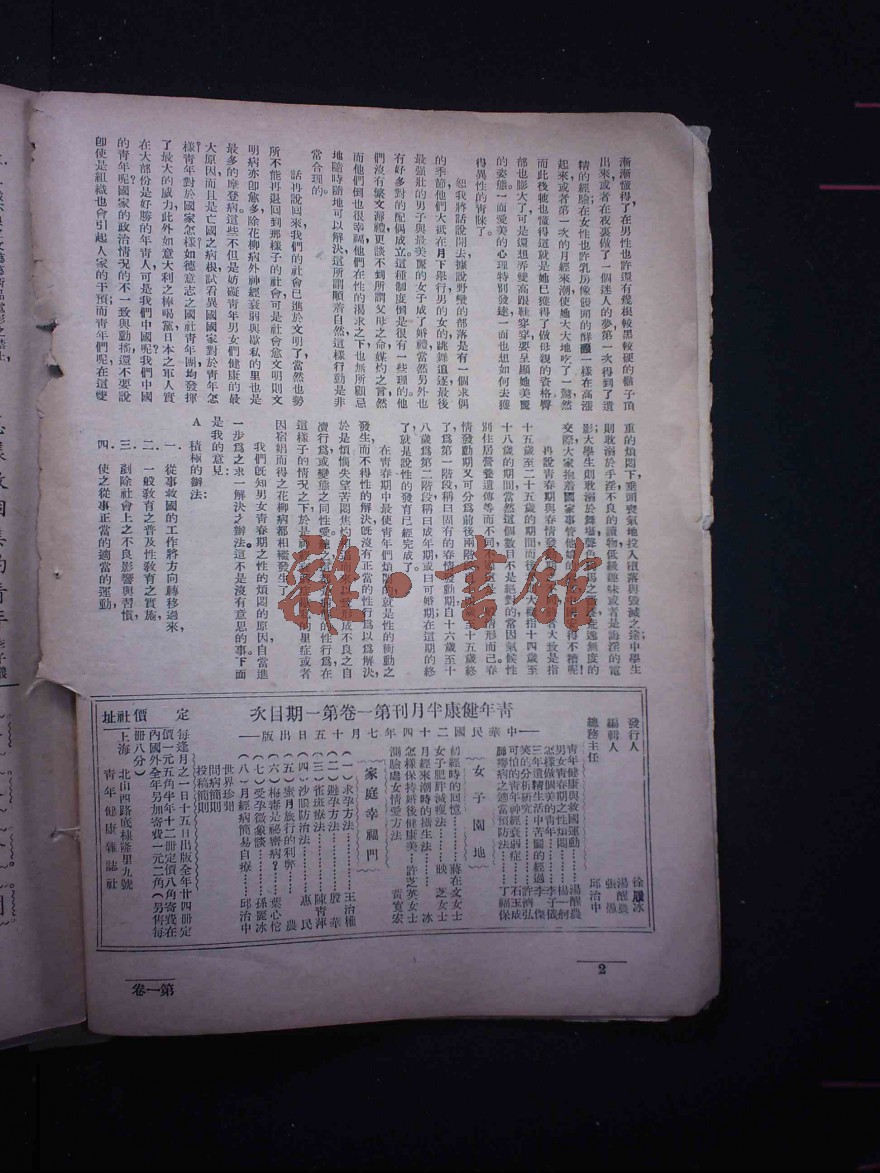 漸漸懂得了在男性也許還有幾根較黑較硬的鬍子頂
出來，或者在夜裏做了一個迷人的夢第一次得到了遺
精的經驗在女性也許乳房像饅頭的鮮
一樣在高漲
起來，或者第一次的月經來潮，使她大大地吃了一驚，然
而此後牠也懂得這就是她已獲得了做母親的資格，臀
部也膨大了，可是還想弄雙高跟鞋穿穿，要呈顯她美麗
的姿態，一面愛美的心理特別發達，一面也想如何去獲
得異性的青睞了。
恕我將話說開去據說野蠻的部落是有一個求偶
的季節他們大抵在月下舉行男的女的跳舞追逐最後
最強壯的男子與最美麗的女子成了婚禮當然另外也
有好多對的配偶成立這種制度倒是很有一些理的他
們沒有繁文溽禮更談不到所謂父母之命媒灼之言然
而他們倒也很幸福他們在性的渴求之下也無所顧忌
地隨時隨地可以解決這所謂順着自然這樣行動是非
常合理的。
話再說回來，我們的社會已進於文明了，當然也勢
所不能再退回到那樣子的社會可是社會愈文明則文
明病亦卽愈多除花柳病外神經衰弱與歇私的里也是
最多的摩登病這些不但是妨礙青年男女們健康的最
大原因而且是亡國之病根試看異國國家對於青年怎
樣青年對於國家怎樣如德意志之國社青年團均發揮
了最大的威力此外如意大利之棒喝黨，日本之軍人實
在大部份是好勝的年青人可是我們中國呢我們中國
的青年呢國家的政治情況的不一致與動搖還不要說
卽使是組織也會引起人家的干預而青年們呢在這雙
重的煩悶下，垂頭喪氣地投入墮落與毀滅之途中學生
則耽溺於手淫不良的讀物低級趣味或當是誨淫的電
影，大學生則耽溺於舞場
聲色
無度的
交際，大家抱着國家事管他娘的
得不糟呢！
再說青春期與春情發
者大致是指
十五歲至二十五歲的期間而後
概指十四歲至
十八歲的期間當然這個數目不是絕對的當因氣候性
別住居營養遺傳等而不同
情形而已春
情發動期又可分爲前後兩階
至十五歲終
了爲第一階段稱曰固有的春情發動期自十六歲至十
八歲爲第二階段稱曰成年期或曰可婚期在這期的終
了，就是說性的發育已經完成了。
在青春期中最使青年們煩悶的就是性的衝動之
發生而不得性的解決旣沒有正當的性行爲以爲解決，
於是煩惱失望苦悶焦灼
形成不良之自
瀆行爲或變態之同性愛
的性行爲在
這樣子的情況之下於是神
的里症或者
因宿娼而得之花柳病都相繼發生了
我們旣知男女青春期之性的煩悶的原因自當進
一步爲之求一解決之辦法，這不是沒有意思的事下面
是我的意見：
A 積極的辦法：
一 從事救國的工作將方向轉移過來，
二 一般敎育之普及性敎育之實施
三 剷除社會上之不良影響與習慣，
四 使之從事正當的適當的運動，
青年健康半月刊第一卷第一期目次
中華民國二十四年七月十五日出版
發行人 徐
冰
編輯人 湯醒農 張
總務主任 邱治中
青年健康與救國運動 湯醒農
男女青春期之性煩悶 楊
怎樣做個美的青年 李子儀
三年遺精生活中苦鬬的經過 李 傑
笑的分析研究 許濟弘
可怕的青年神經衰弱症 石玉成
肺癆病之適當預防法 丁福保
女子園地
初經時的回憶 蔣在文女士
女子肥胖減瘦法 映芝女士
月經來潮時的攝生法 冰
怎樣保持婚後健康美 許芝英女士
測驗處女情愛方法 黃寶宏
家庭幸福門
（一）求孕方法 王治權
（二）避孕方法 殷 華
（三）雀斑療法 陳青萍
（四）沙眼防治法 惠 民
（五）蜜月旅行的利弊 農
（六）梅毒是祕密病？ 葉心佗
（七）受孕徵象談 孫
冰
（八）月經病簡易自療 邱治中
世界珍聞
問病簡則
投稿簡則
定價
每逢月之一日十五日出版全年廿四册定
價一元五角半年十二册定價八角寄費在
內國外全年另加寄費一元二角（另售每
册八分）
社址
上海 北山西路底棣隆里九號
青年健康雜誌社
2
第一卷
雜·書館